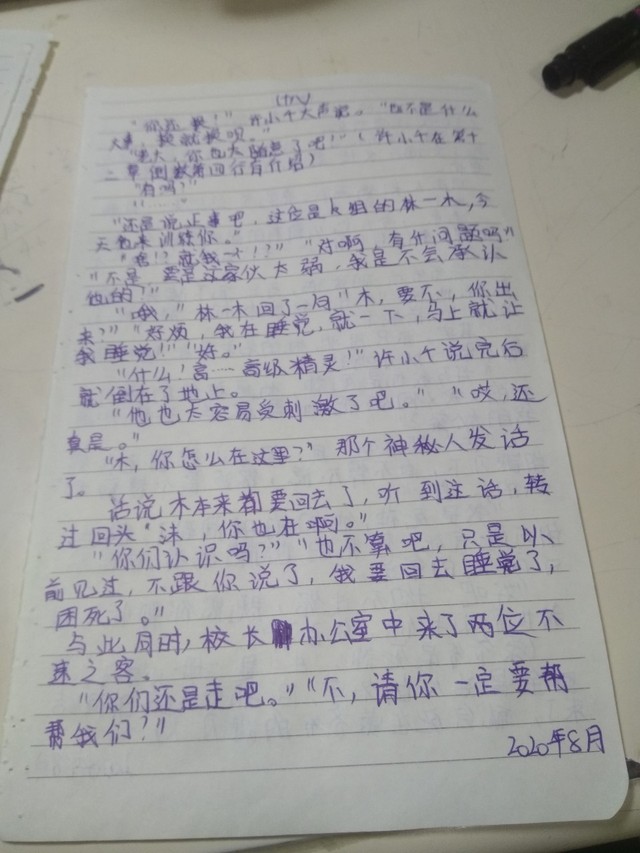 (十八)
"你还换!"许小千大声吼。"也不是什么
大事,换就换呗。"
"老大,你也太随意了吧!"(许小千在第十
二章倒数第四行有介绍)
"有吗?"
"……"
"还是说正事吧,这位是k组的林一木,今
天包来训练你。"
"啥!?就我一个!?""对啊,有什问题吗"
"不是,要是这家伙太弱,我是不会承认
他的?"
"哦,"林一木回了一句"木,要不,你出
来?""好烦,我在睡觉,就一下,马上就让
我睡觉!""好。"
"什么!高……高级精灵!"许小千说完后
就倒在了地上。
"他也太容易受刺激了吧。""哎,还
真是。"
"木,你怎么在这里?"那个神秘人发话
了。
话说木本来都要回去了,听到这话,转
过回头"沫,你也在啊。"
"你们认识吗?""也不算吧,只是以
前见过,不跟你说了,我要回去睡觉了,
困死了。"
与此同时,校长办公室中来了两位不
速之客。
"你们还是走吧。""不,请你一定要帮
帮我们?"
2020年8月